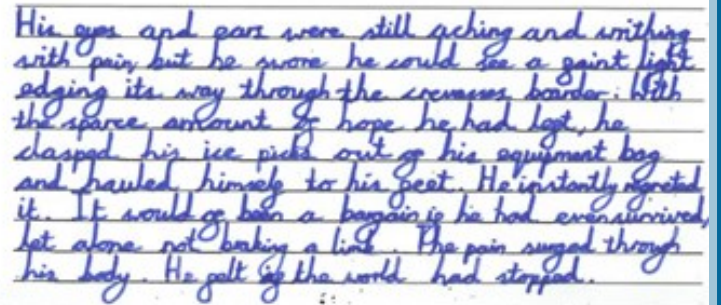 His eyes and ears were still aching and writhing
with pain but he swore he could see a faint light
edging its way through the crevasses boarder. With
the sparce amount of hope he had left, he
clasped his ice picks out of his equipment bag
and hauled himself to his feet. He instantly regreted
it. It would of been a bargain if he had even survived,
let alone not braking a limb. The pain surged through
his body. He felt as the world had stopped.